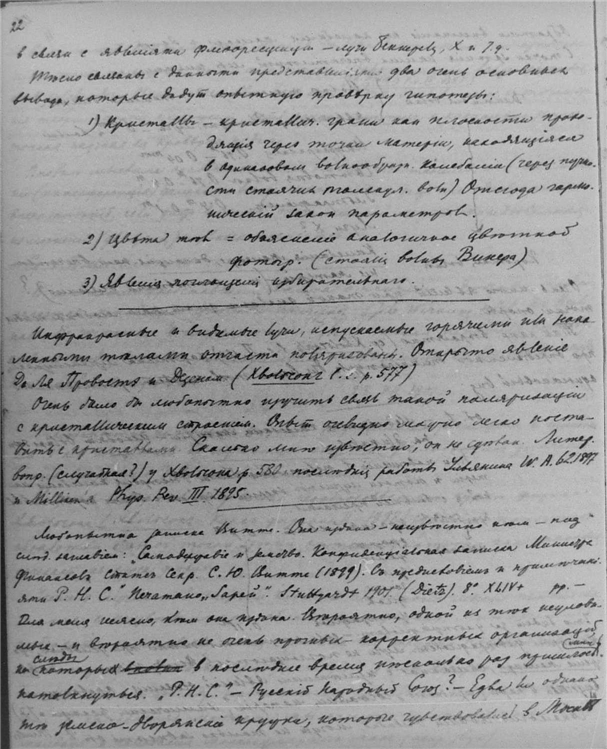 22
в связи с явленіями флюоресценціи – лучи Беккереля, X и др.
Тѣсно связаны с данностью представленія два очень основных
вывода, которые дадут опытную провѣрку гипотезы:
1) Кристаллы – кристаллич. грани как плоскости прохо-
дящія через точки матеріи, находящіяся
в одинаковом волнообразн. колебаніи (через
стоячих молекул. волн) Отсюда гармо-
ническій закон параметров.
2) Цвѣта тѣл = объясненіе аналогичное цвѣтной
фотогр. (стоячія волны Винера)
3) Явленія поглощенія избирательнаго.
Инфракрасные и видимые лучи, испускаемые горячими или нака-
ленными тѣлами отчасти поляризованы. Открыто явленіе
Де ля Провостэ и Дезэном (Хвольсонъ l. c. p. 577)
Очень было бы любопытно изучить связь такой поляризаціи
с кристаллическим строеніем. Опыт очевидно можно легко поста-
вить с кристаллами. Сколько мнѣ извѣстно, он не сдѣлан. Литер.
вопр. (случайная?) у Хвольсона p 580 послѣднія работы W. A. 62 1897
и Millikan Phys. Rev. III. 1895.
Любопытна записка Витте. Она издана – неизвѣстно кѣм – под
слѣд. заглавіем: "Самодержавіе и земство. Конфиденціальная записка Министра
Финансов Статсъ Секр. С. Ю. Витте (1899). Съ предисловіемъ и примѣчані-
ями Р. Н. С." Печатано "Зарей". Stuttgart 1901 (Dietz). 8° XLIV+ pp –
Для меня неясно, кѣм она издана. Вѣроятно, одной из тѣх неулови-
мых – и вѣроятно не очень прочных корректных организацій,
на слѣды которых в послѣднее время нѣсколько раз пришлось
натолкнуться. "Р. Н. С." – Русскій Народный Союз? – Едва ли однако
то земско-дворянскіе кружки, которые чувствовались в Москвѣ